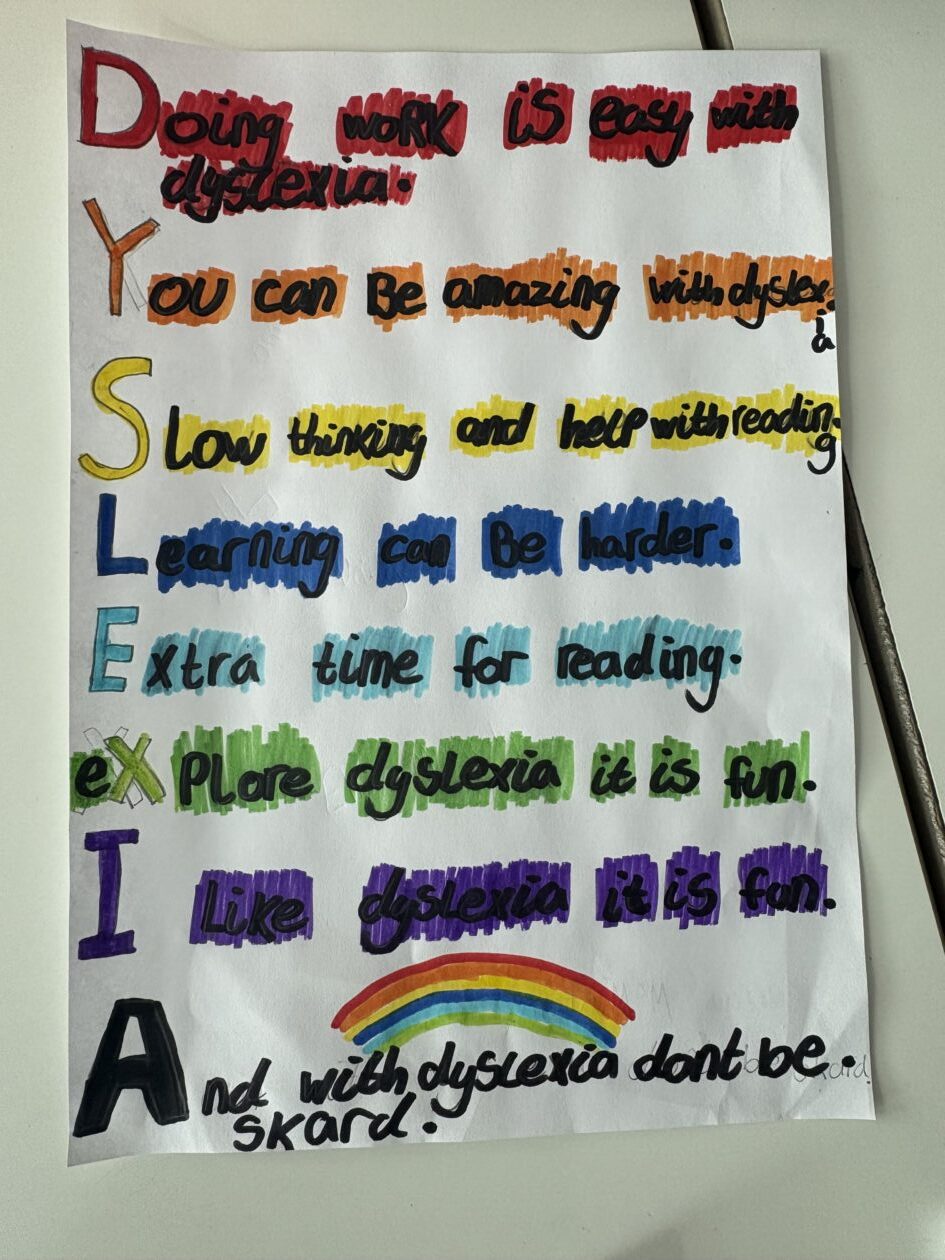 Doing woRK iS easy with
dyslexia.
You can Be amazing with dyslex
ia
Slow thinking and help with readin
g
Learning can Be harder.
Extra time for reading.
eXPlore dyslexia it is fun.
I Like dyslexia it is fun.
And with dyslexia dont be.
skard.